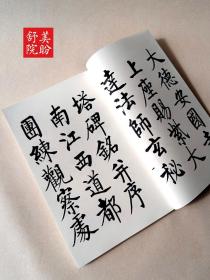 美盼
舒院
大德安國寺
上座賜紫大
達法師玄秘
塔碑銘并序
南江西道都
團練觀察處